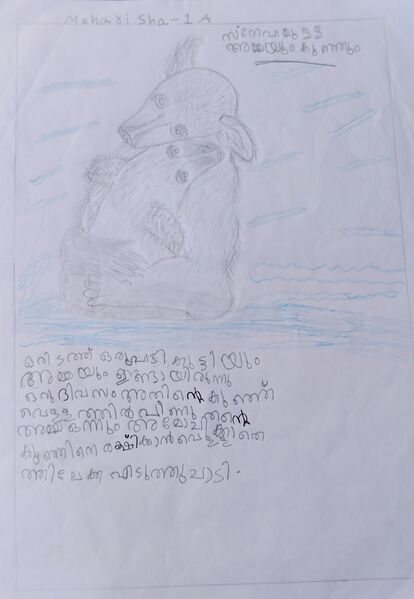 Mehari Sha - 1 A
സ്നേഹമുള്ള
അമ്മയും കുഞ്ഞും
ഒരിടത്ത് ഒരു കുട്ടിയും
അമ്മയും ഉണ്ടായിരുന്നു
ഒരു ദിവസം അതിന്റെ കുഞ്ഞ്
വെള്ളത്തിൽ വീണു തന്റെ
അമ്മ ഒന്നും ആലോചിക്കാതെ
കുഞ്ഞിനെ രക്ഷിക്കാൻ വെള്ള
ത്തിലേക്ക് എടുത്തുചാടി.